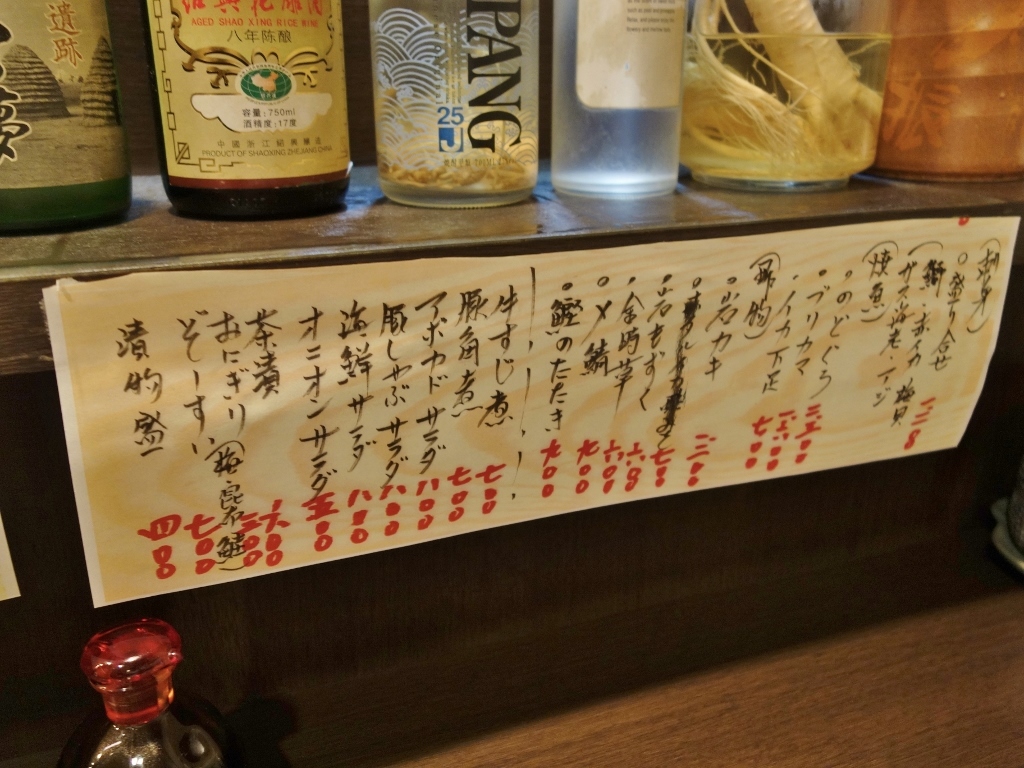 遺跡
夢
紹興花雕酒
AGED SHAO XING RICE WINE
八年陈酿
容量:750ml
酒精度:17度
中國浙江紹興釀造
PRODUCT OF SHAOXING ZHEJIANG CHINA
PANG
25
(刺身)
○盛り合せ 一三〇〇
(鰤・赤イカ 梅貝
ガス海老・アジ
(焼魚)
・のどぐろ 三五〇〇
・ブリカマ 一六〇〇
・イカ下足 七〇〇
(一品物)
○岩カキ 一二〇〇
○岩もずく 七〇〇
・金時草 六〇〇
○〆鯖 九〇〇
○鰹のたたき 九〇〇
牛すじ煮 七〇〇
豚角煮 七〇〇
アボカドサラダ 八〇〇
豚しゃぶサラダ 八〇〇
海鮮サラダ 八〇〇
オニオンサラダ 五〇〇
茶漬 六〇〇
おにぎり(梅 昆布 鮭) 三〇〇
ぞーすい 七〇〇
漬物盛 四〇〇